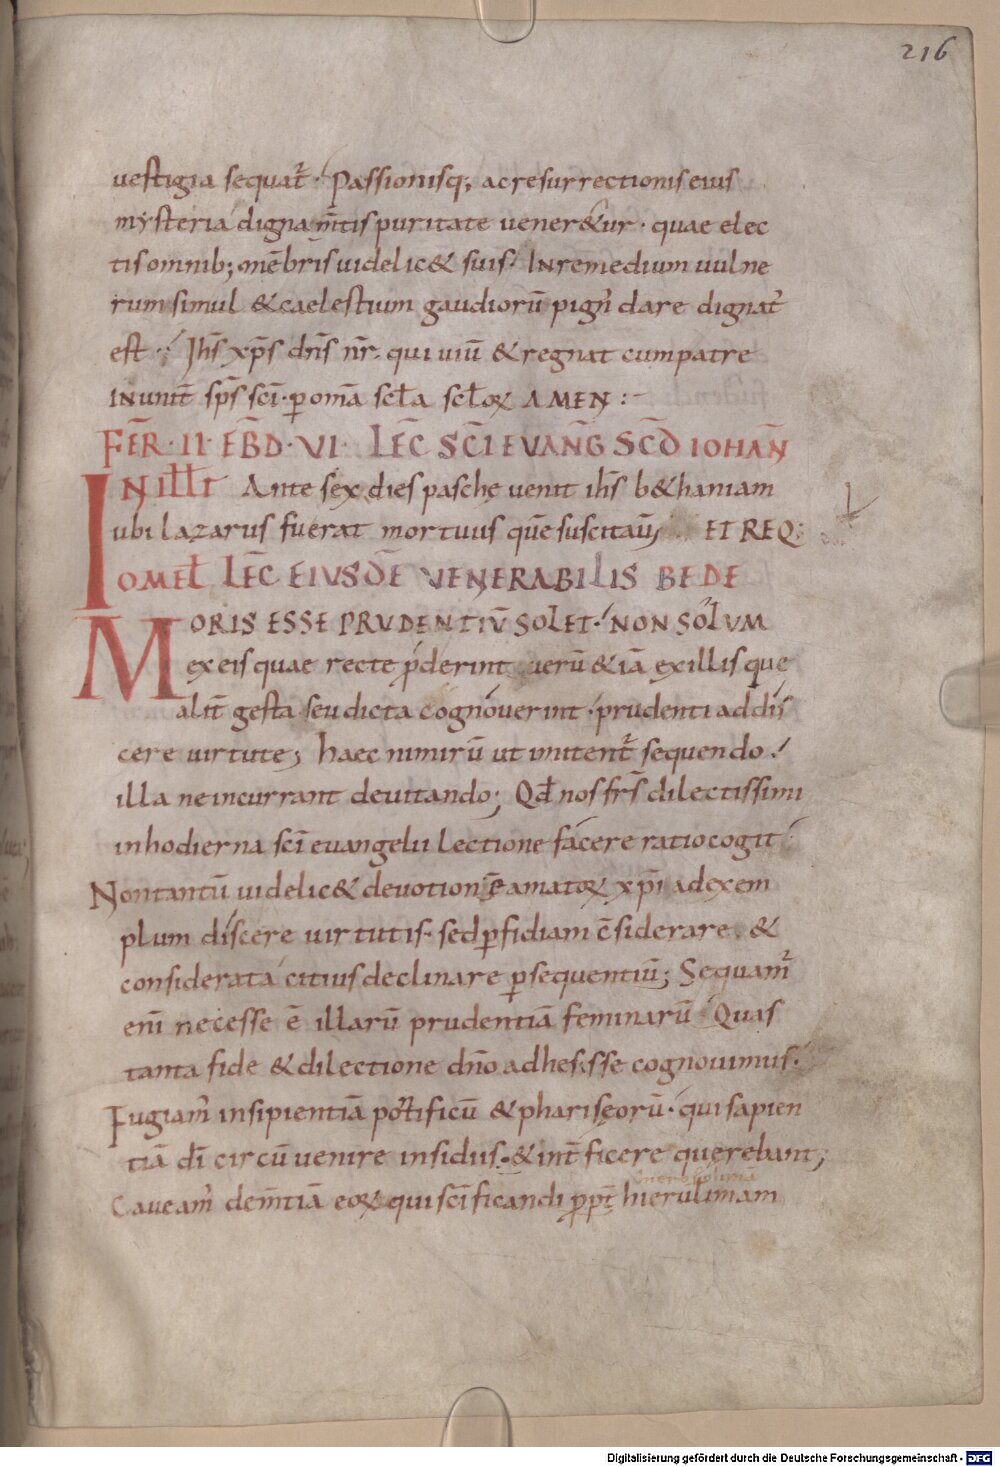 216
uestigia sequat᷑· Passionisq; ac resurrectionis eius
mysteria digna m̅tis puritate uener&ur· quae elec
tis omnib; me̅bris uidelic& suis· In remedium uulne
rum simul & caelestium gaudioru̅ pign̅ dare dignat᷑
est·: Ih̅s xp̅s dn̅s nr̅· qui uiu̅ & regnat cum patre
In unit̅ sp̅s sc̅i· ꝑ om̅a scl̅a scl̅oꝝ AMEN:-
FE̅R·II·EB̅D·VI· LEC̅ SC̅I EVAN̅G SC̅D IOHAN̅
IN ILL̅T Ante sex dies paschę uenit ih̅s b&haniam
ubi lazarus fuerat mortuus que̅ suscitau̅; ET REQ:
OMEL̅ LEC̅ EIUSDE̅ VENERABILIS BEDE
MORIS ESSE PRVDENTIV̅ SOLET· NON SOLVM
ex eis quae recte p̅derint ueru̅ & ia̅ ex illis que
alit̅ gesta seu dicta cognouerint· prudenti addis
cere uirtute; haec nimiru̅ ut imitent᷑ sequendo·
illa ne incurrant deuitando; Qd̅ nos fr̅s dilectissimi
in hodierna sc̅i euangelii lectione facere ratio cogit
Non tantu̅ uidelic& deuotione̅ amatoꝝ xp̅i ad exem
plum discere uirtutis· sed ꝑfidiam c̅siderare &
considerata citius declinare ꝑsequentiu̅; Sequam᷑
eni̅ necesse e̅ illaru̅ prudentia̅ feminaru̅ Quas
tanta fide & dilectione dn̅o adhesisse cognouimus·
Fugiam᷑ insipientia̅ po̅tificu̅ & phariseoru̅· qui sapien
tia̅ di̅ circu̅uenire insidiis· & int̅ficere querebant;
hierosolimā
Caueam᷑ dem̅tia̅ eoꝝ qui sc̅ificandi ꝓpt̅ hierulimam
Digitalisierung gefördert durch die Deutsche Forschungsgemeinschaft - DFG